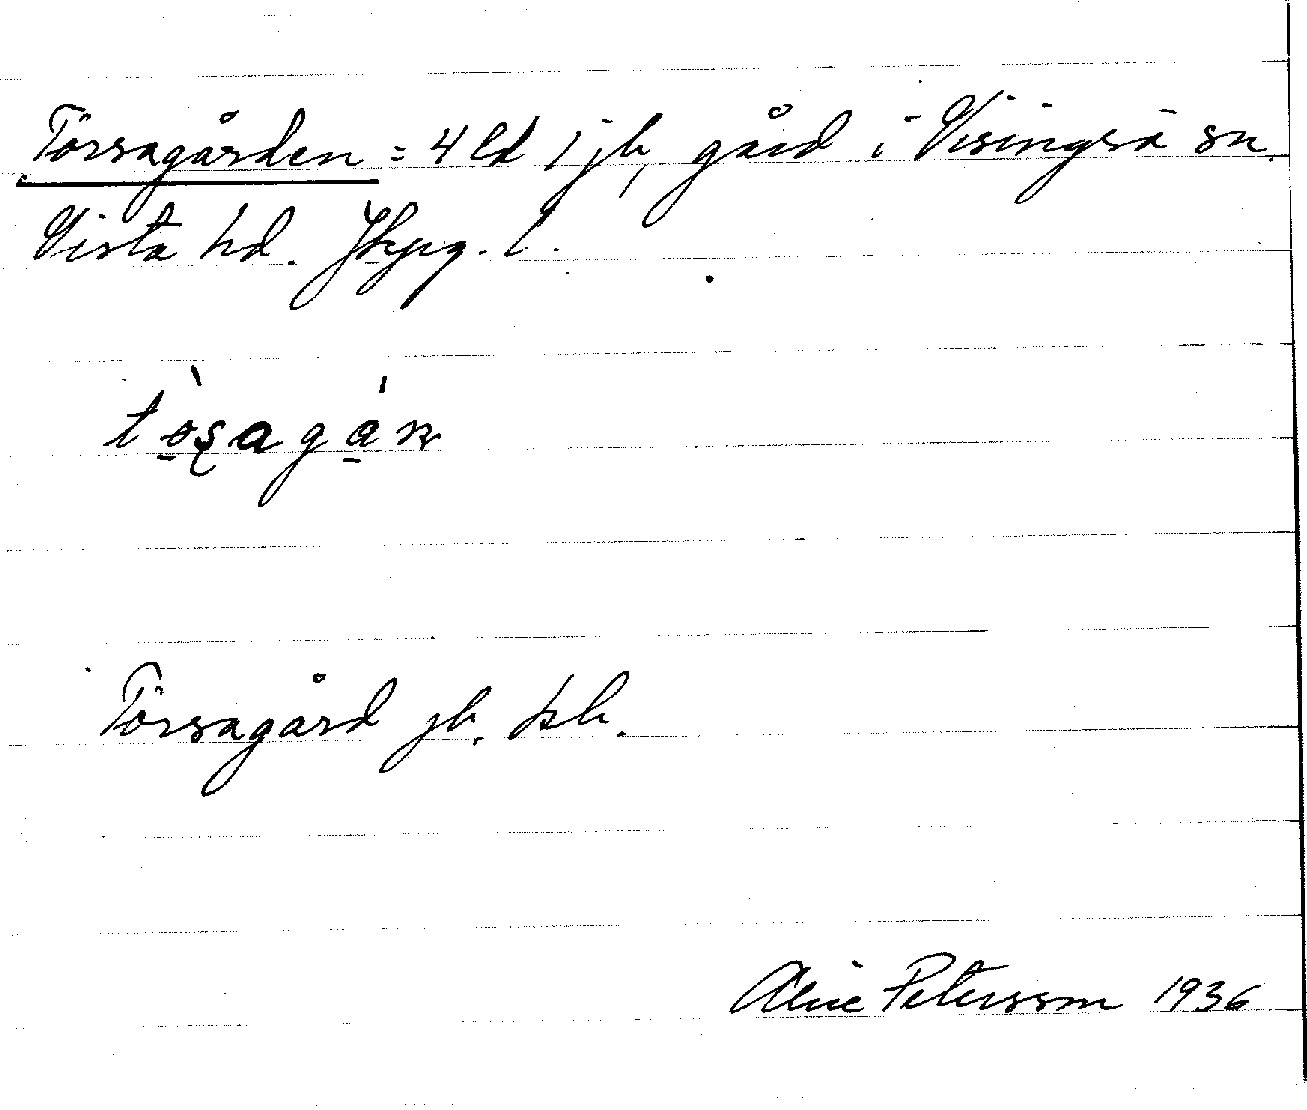 Törsagården = 4 ld i jb, gård i Visingsö sn.
Vista hd. Jkpg. l.
Törsagård jb. kb.
Alice Petersson 1936